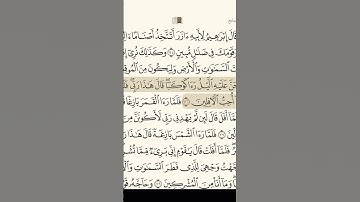 قَالَ إِبْرَٰهِيمُ لِأَبِيهِ ءَازَرَ أَتَتَّخِذُ أَصْنَامًا ءَا
قَوْمَكَ فِي ضَلَٰلٍ مُّبِينٍ ٧٤ وَكَذَٰلِكَ نُرِيٓ
ٱلسَّمَٰوَٰتِ وَٱلْأَرْضِ وَلِيَكُونَ مِنَ ٱلْمُوقِ
عَلَيْهِ ٱلَّيْلُ رَءَا كَوْكَبًا قَالَ هَٰذَا رَبِّي فَلَ
أُحِبُّ ٱلْءَافِلِينَ ٧٦ فَلَمَّا رَءَا ٱلْقَمَرَ بَازِغًا
أَفَلَ قَالَ لَئِن لَّمْ يَهْدِنِي رَبِّي لَأَكُونَنَّ مِ
٧٧ فَلَمَّا رَءَا ٱلشَّمْسَ بَازِغَةً قَالَ هَ
فَلَمَّآ أَفَلَتْ قَالَ يَٰقَوْمِ إِنِّي بَرِيٓءٌ مِّمَّا تُشْ
وَجْهِيَ لِلَّذِي فَطَرَ ٱلسَّمَٰوَٰتِ وَٱلْأَ
وَمَآ أَنَا۠ مِنَ ٱلْمُشْرِكِينَ ٧٩ وَحَآجَّهُۥ قَوْ